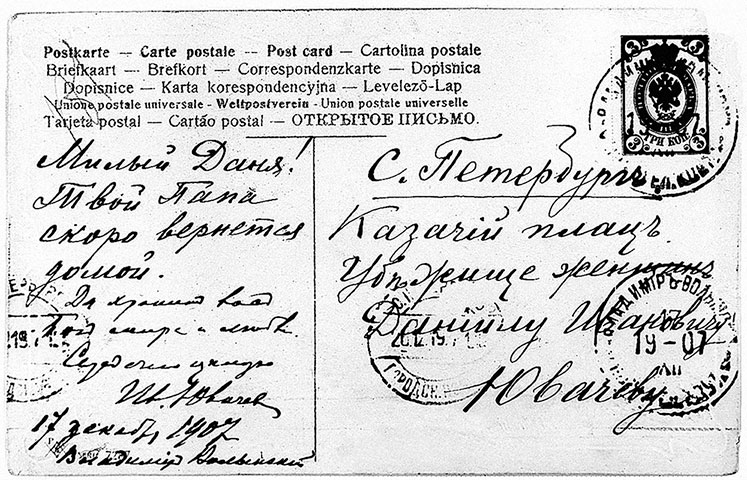 Postkarte — Carte postale — Post card — Cartolina postale
Briefkaart — Brefkort — Correspondenzkarte — Dopisnica
Dopisnice — Karta korespondencyjna — Levelező-Lap
Unione postale universale - Weltpostverein - Union postale universelle
Tarjeta postal — Cartão postal — ОТКРЫТОЕ ПИСЬМО.
Милый Даня!
Твой Папа
скоро вернется
домой.
Да хранит вас
Бог мира и любви
Ив. Ювачев
17 декаб. 1907
Владимір Волынский
С. Петербургъ
Казачій плацъ.
Убѣжище женщинъ
Даниилу Ивановичу
Ювачеву
3 3
ТРИ КОП.
ВЛАДИМІРЪ-ВОЛЫН
19-07
XII
ГОРОДСК